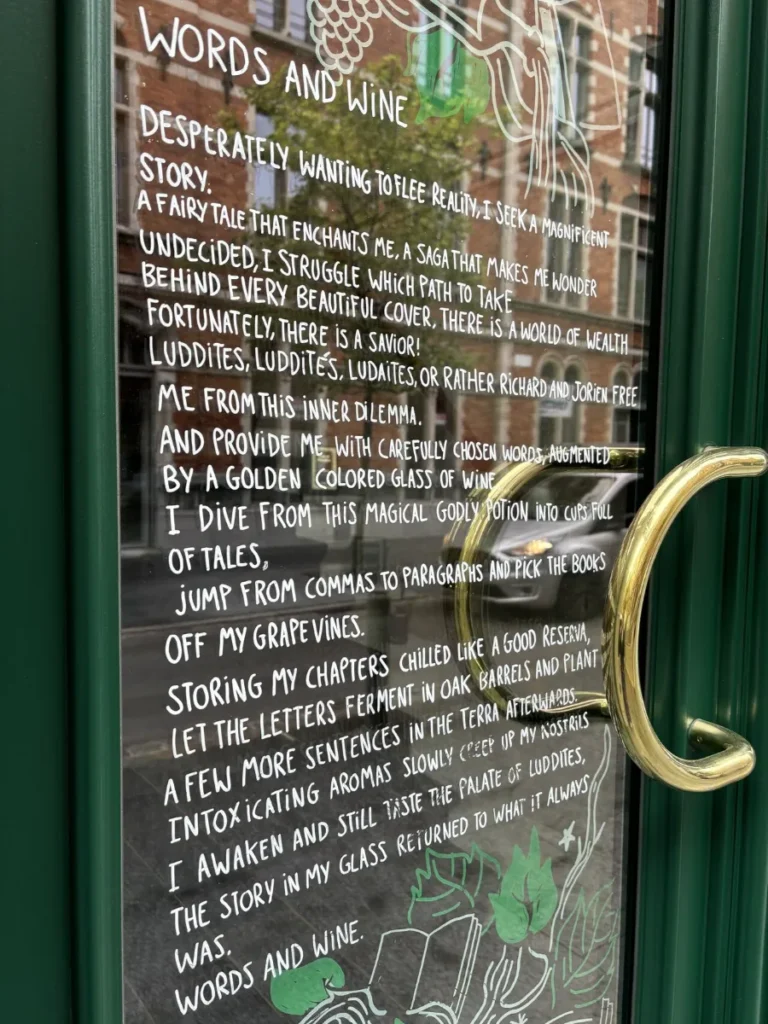 WORDS AND WINE
DESPERATELY WANTING TO FLEE REALITY, I SEEK A MAGNIFICENT
STORY.
A FAIRYTALE THAT ENCHANTS ME, A SAGA THAT MAKES ME WONDER
UNDECIDED, I STRUGGLE WHICH PATH TO TAKE
BEHIND EVERY BEAUTIFUL COVER, THERE IS A WORLD OF WEALTH
FORTUNATELY, THERE IS A SAVIOR!
LUDDITES, LUDDITES, LUDAITES, OR RATHER RICHARD AND JORIEN FREE
ME FROM THIS INNER DILEMMA.
AND PROVIDE ME WITH CAREFULLY CHOSEN WORDS, AUGMENTED
BY A GOLDEN COLORED GLASS OF WINE
I DIVE FROM THIS MAGICAL GODLY POTION INTO CUPS FULL
OF TALES,
JUMP FROM COMMAS TO PARAGRAPHS AND PICK THE BOOKS
OFF MY GRAPEVINES.
STORING MY CHAPTERS CHILLED LIKE A GOOD RESERVA,
LET THE LETTERS FERMENT IN OAK BARRELS AND PLANT
A FEW MORE SENTENCES IN THE TERRA AFTERWARDS.
INTOXICATING AROMAS SLOWLY CREEP UP MY NOSTRILS
I AWAKEN AND STILL TASTE THE PALATE OF LUDDITES,
THE STORY IN MY GLASS RETURNED TO WHAT IT ALWAYS
WAS.
WORDS AND WINE.